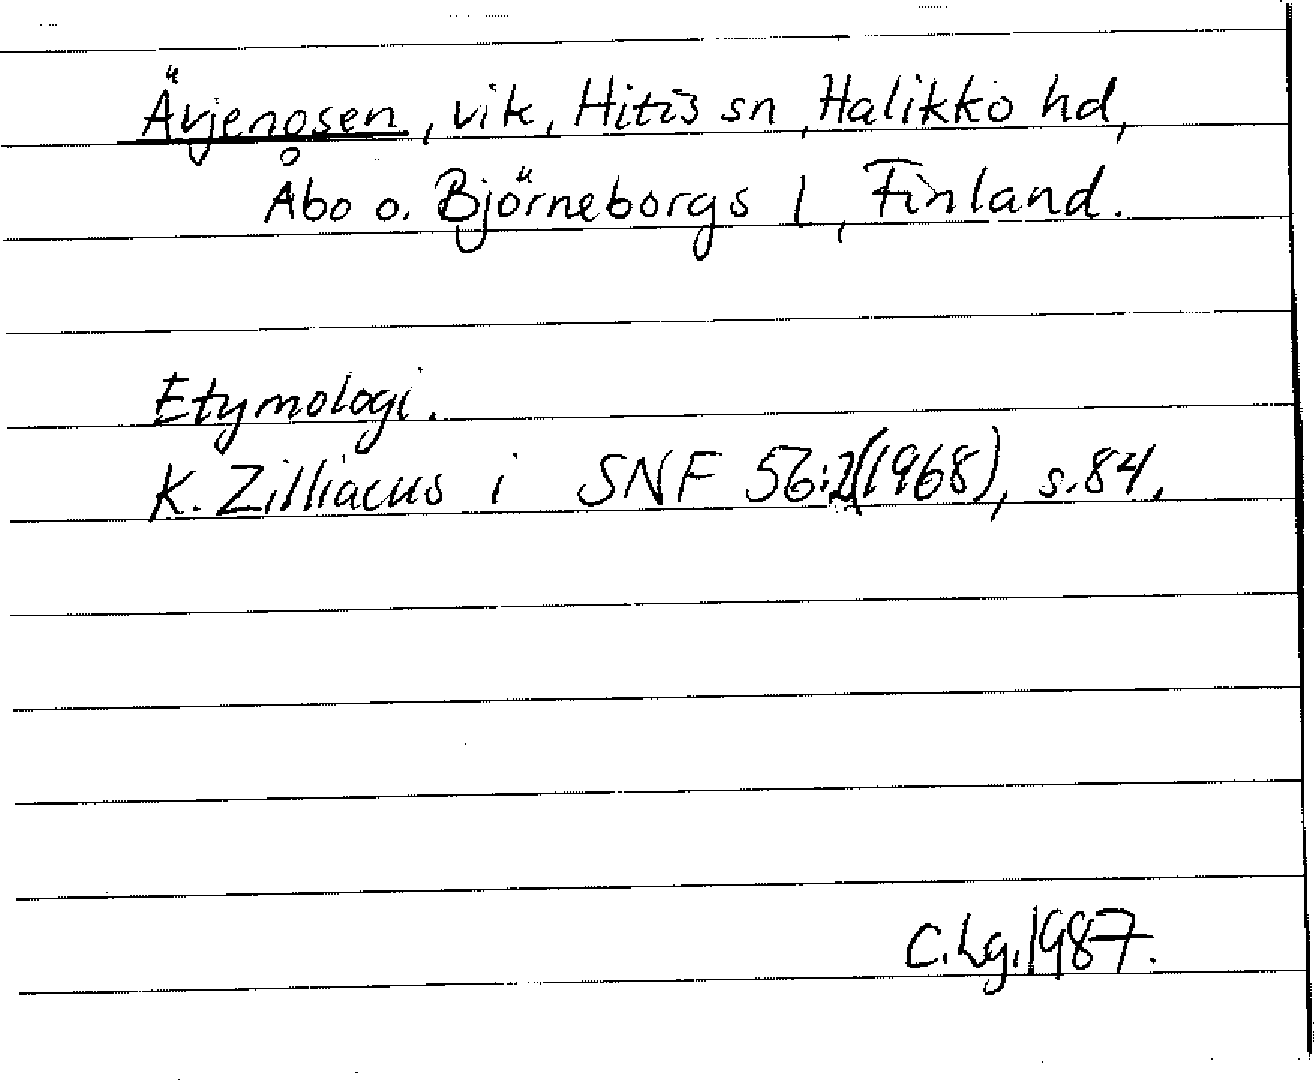 Ärjenosen, vik, Hitis sn, Halikko hd,
Åbo o. Björneborgs l, Finland.
Etymologi.
K. Zilliacus i SNF 56:2(1968), s.84.
C.Lg.1987.